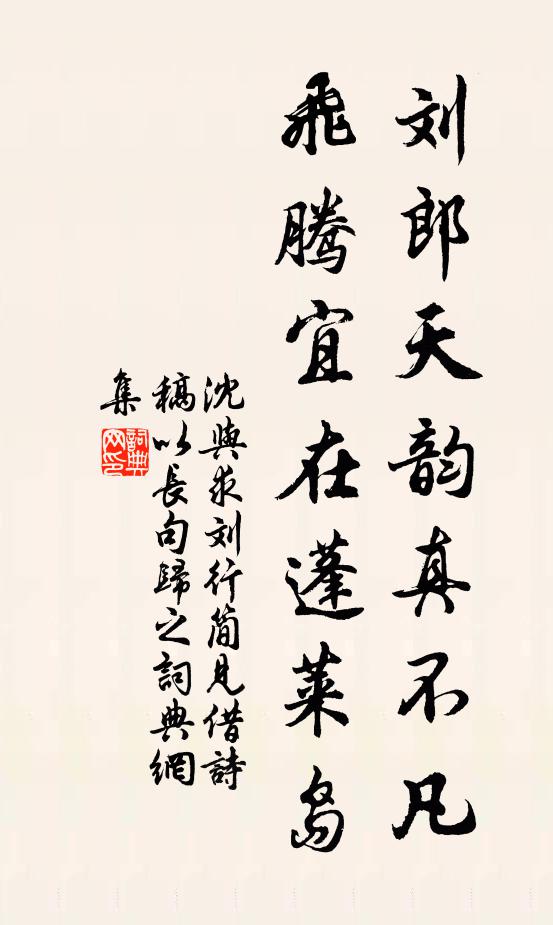 刘郎天韵真不凡
飛騰宜在蓬莱島
沈與求刘行简見借詩
稿以長句歸之詞典網
集
詞典
网印